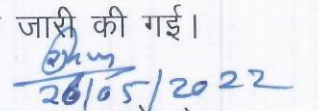 जारी की गई।
26/05/2022